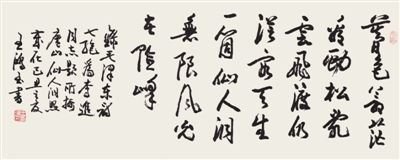 暮色蒼茫
看勁松亂
雲飛渡仍
從容天生
一個仙人洞
無限風光
在險峰
錄毛澤東詩
七絕為李進
同志題所攝
廬山仙人洞照
己丑
王 玉書